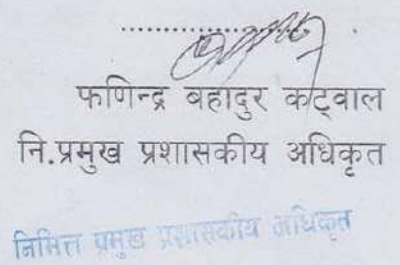 ....................
फणिन्द्र बहादुर कट्वाल
नि.प्रमुख प्रशासकीय अधिकृत
निमित्त प्रमुख प्रशासकीय अधिकृत